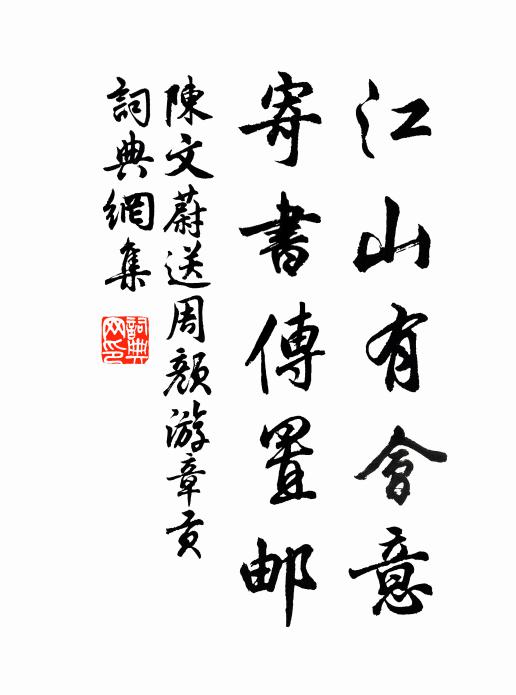 江山有會意
寄書傳置邮
陳文蔚送周顏游章贡
詞典網集
詞典网印